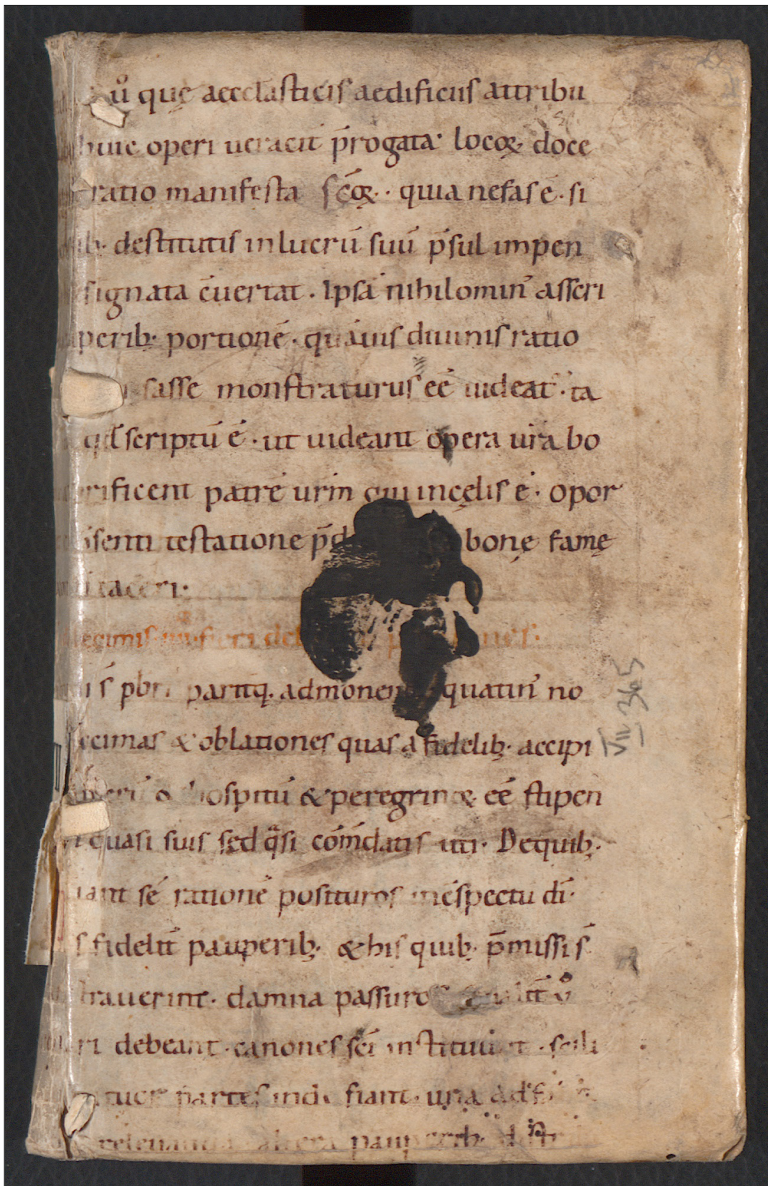 uͦ quę aecclasticis aedificiis attribu
huic operi ueracit̄ p̄rogata· locoꝝ doce
ratio manifesta sc̄oꝝ· quia nefas ē· si
ib; destitutis in lucrū suū p̄sul impen
signata c̄uertat· Ipsā nihilomin̄ asseri
perib; portionē· quāuis diuinis ratio
sasse monstraturus eē uideat̄· ta
scriptū ē· ut uideant opera ur̄a bo
rificent patrē urm̄ qui in cęlis ē· opor
senti testatione p̄d bonę famę
taceri·
ecimis
s̄ pbr̄i parit̄q; admonen quatin̄ no
ecimas & oblationes quas a fidelib; accipi
hospitū & peregrinoꝝ eē stipen
quasi suis sed q̄si com̄datis uti· De quib;
iant se rationē posituros in c̄spectu dī·
s fidelit̄ pauperib; & his quib; p̄missi s̄
trauerint· damna passuros
ri debeant· canones sc̄i instituunt· scili
partes inde fiant· una ad
altera pauperib;
VIII 365